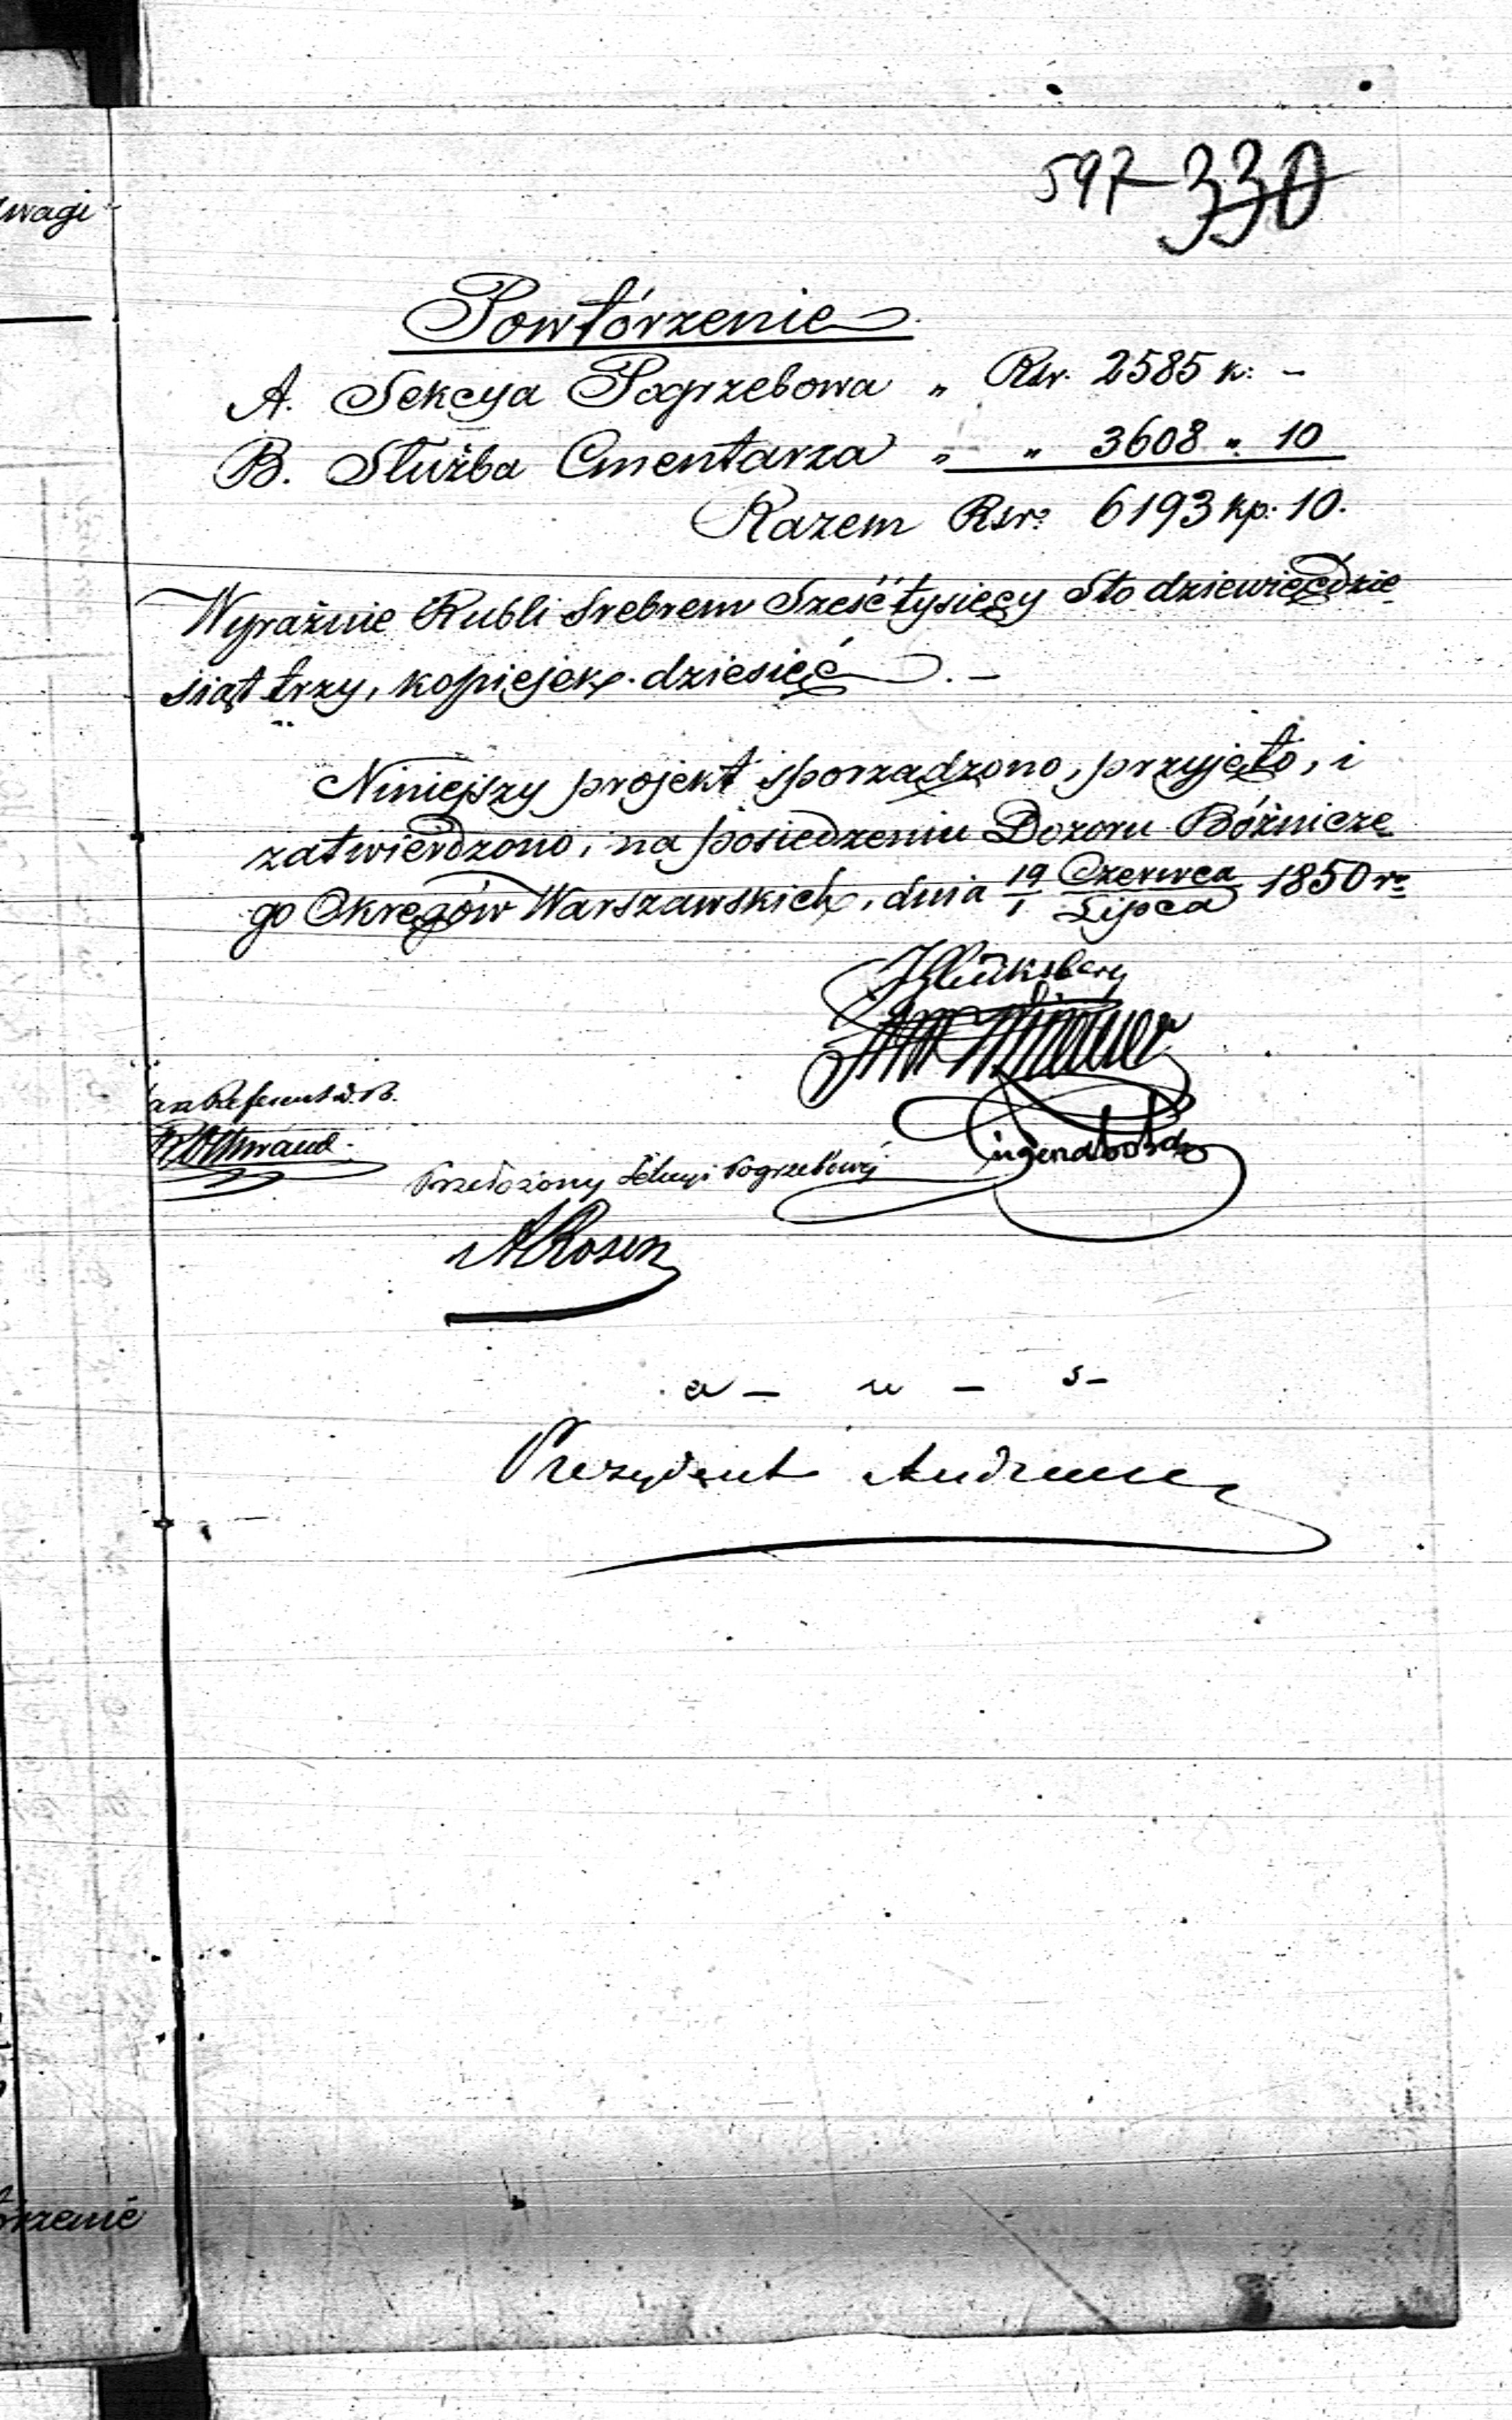 wagi
597 330
Powtórzenie
A. Sekcya Pogrzebowa „ Rsr. 2585 k: –
B. Służba Cmentarza „ „ 3608 „ 10
Razem Rsr: 6193 kp: 10.
Wyraźnie Rubli Srebrem Sześć tysięcy Sto dziewięćdzie
siąt trzy, kopiejek dziesięć. –
Niniejszy projekt sporządzono, przyjęto, i
zatwierdzono, na posiedzeniu Dozoru Bóżnicze
go Okręgów Warszawskich, dnia 19/1 Czerwca/Lipca 1850 r.
JGlücksberg
Referent D. B.
Tugendhold
Przełożony Sekcyi Pogrzebowej
ARosen
Prezydent
rzenie